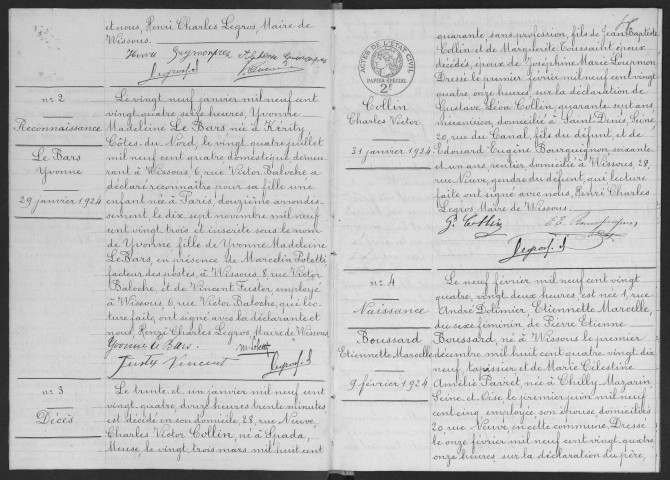 et nous, Henri Charles Legros, Maire de
Wissous.
Legros H.
nº 2
Reconnaissance
Le Bars
Yvonne
29 janvier 1924
Le vingt neuf janvier mil neuf cent
vingt quatre sept heures, Yvonne
Madeleine Le Bars née à Kérity,
Côtes-du-Nord, le vingt quatre juillet
mil neuf cent quatre domestique demeu-
rant à Wissous 6, rue Victor Baloche a
déclaré reconnaître pour sa fille une
enfant née à Paris, douzième arrondis-
sement, le dix sept novembre mil neuf
cent vingt trois et inscrite sous le nom
de Yvonne fille de Yvonne Madeleine
Le Bars, en présence de Marcelin Poletti
facteur des postes, à Wissous, 8, rue Victor
Baloche, et de Vincent Fuster, employé
à Wissous, 6, rue Victor Baloche, qui lec-
ture faite, ont signé avec la déclarante et
nous, Henri Charles Legros, Maire de Wissous.
Yvonne le Bars. m Poletti
Fuster Vincent Legros H.
nº 3
Décès
Le trente et un janvier mil neuf cent
vingt quatre, douze heures trente minutes
est décédé en son domicile, 28, rue Neuve,
Charles Victor Collin, né à Spada,
Meuse, le vingt trois mars mil huit cent
ACTES DE L'ETAT CIVIL
PAPIER SPECIAL
2F
Collin
Charles Victor
31 janvier 1924
quarante, sans profession, fils de Jean Baptiste
Collin et de Marguerite Toussaint époux
décédés, époux de Joséphine Marie Lourmon
Dressé le premier février mil neuf cent vingt
quatre, onze heures, sur la déclaration de
Gustave Léon Collin, quarante sept ans,
mécanicien, domicilié à Saint Denis, Seine,
20, rue du Canal, fils du défunt, et de
Edouard Eugène Bourguignon, soixante
et un ans, rentier, domicilié à Wissous, 28,
rue Neuve, gendre du défunt, qui lecture
faite ont signé avec nous, Henri Charles
Legros, Maire de Wissous.
G. Collin
Legros H.
nº 4
Naissance
Boussard
Etiennette Marcelle
9 février 1924
Le neuf février mil neuf cent vingt
quatre, vingt deux heures, est née 1, rue
André Dolimier, Etiennette Marcelle,
du sexe féminin de Pierre Etienne
Boussard, né à Wissous le premier
décembre mil huit cent quatre vingt dix
neuf, tapissier et de Marie Célestine
Amélie Parret, née à Chilly Mazarin
Seine et Oise, le premier juin mil neuf
cent cinq, employée son épouse domiciliés
20, rue Neuve, en cette commune. Dressé
le onze février mil neuf cent vingt quatre
onze heures, sur la déclaration du père,